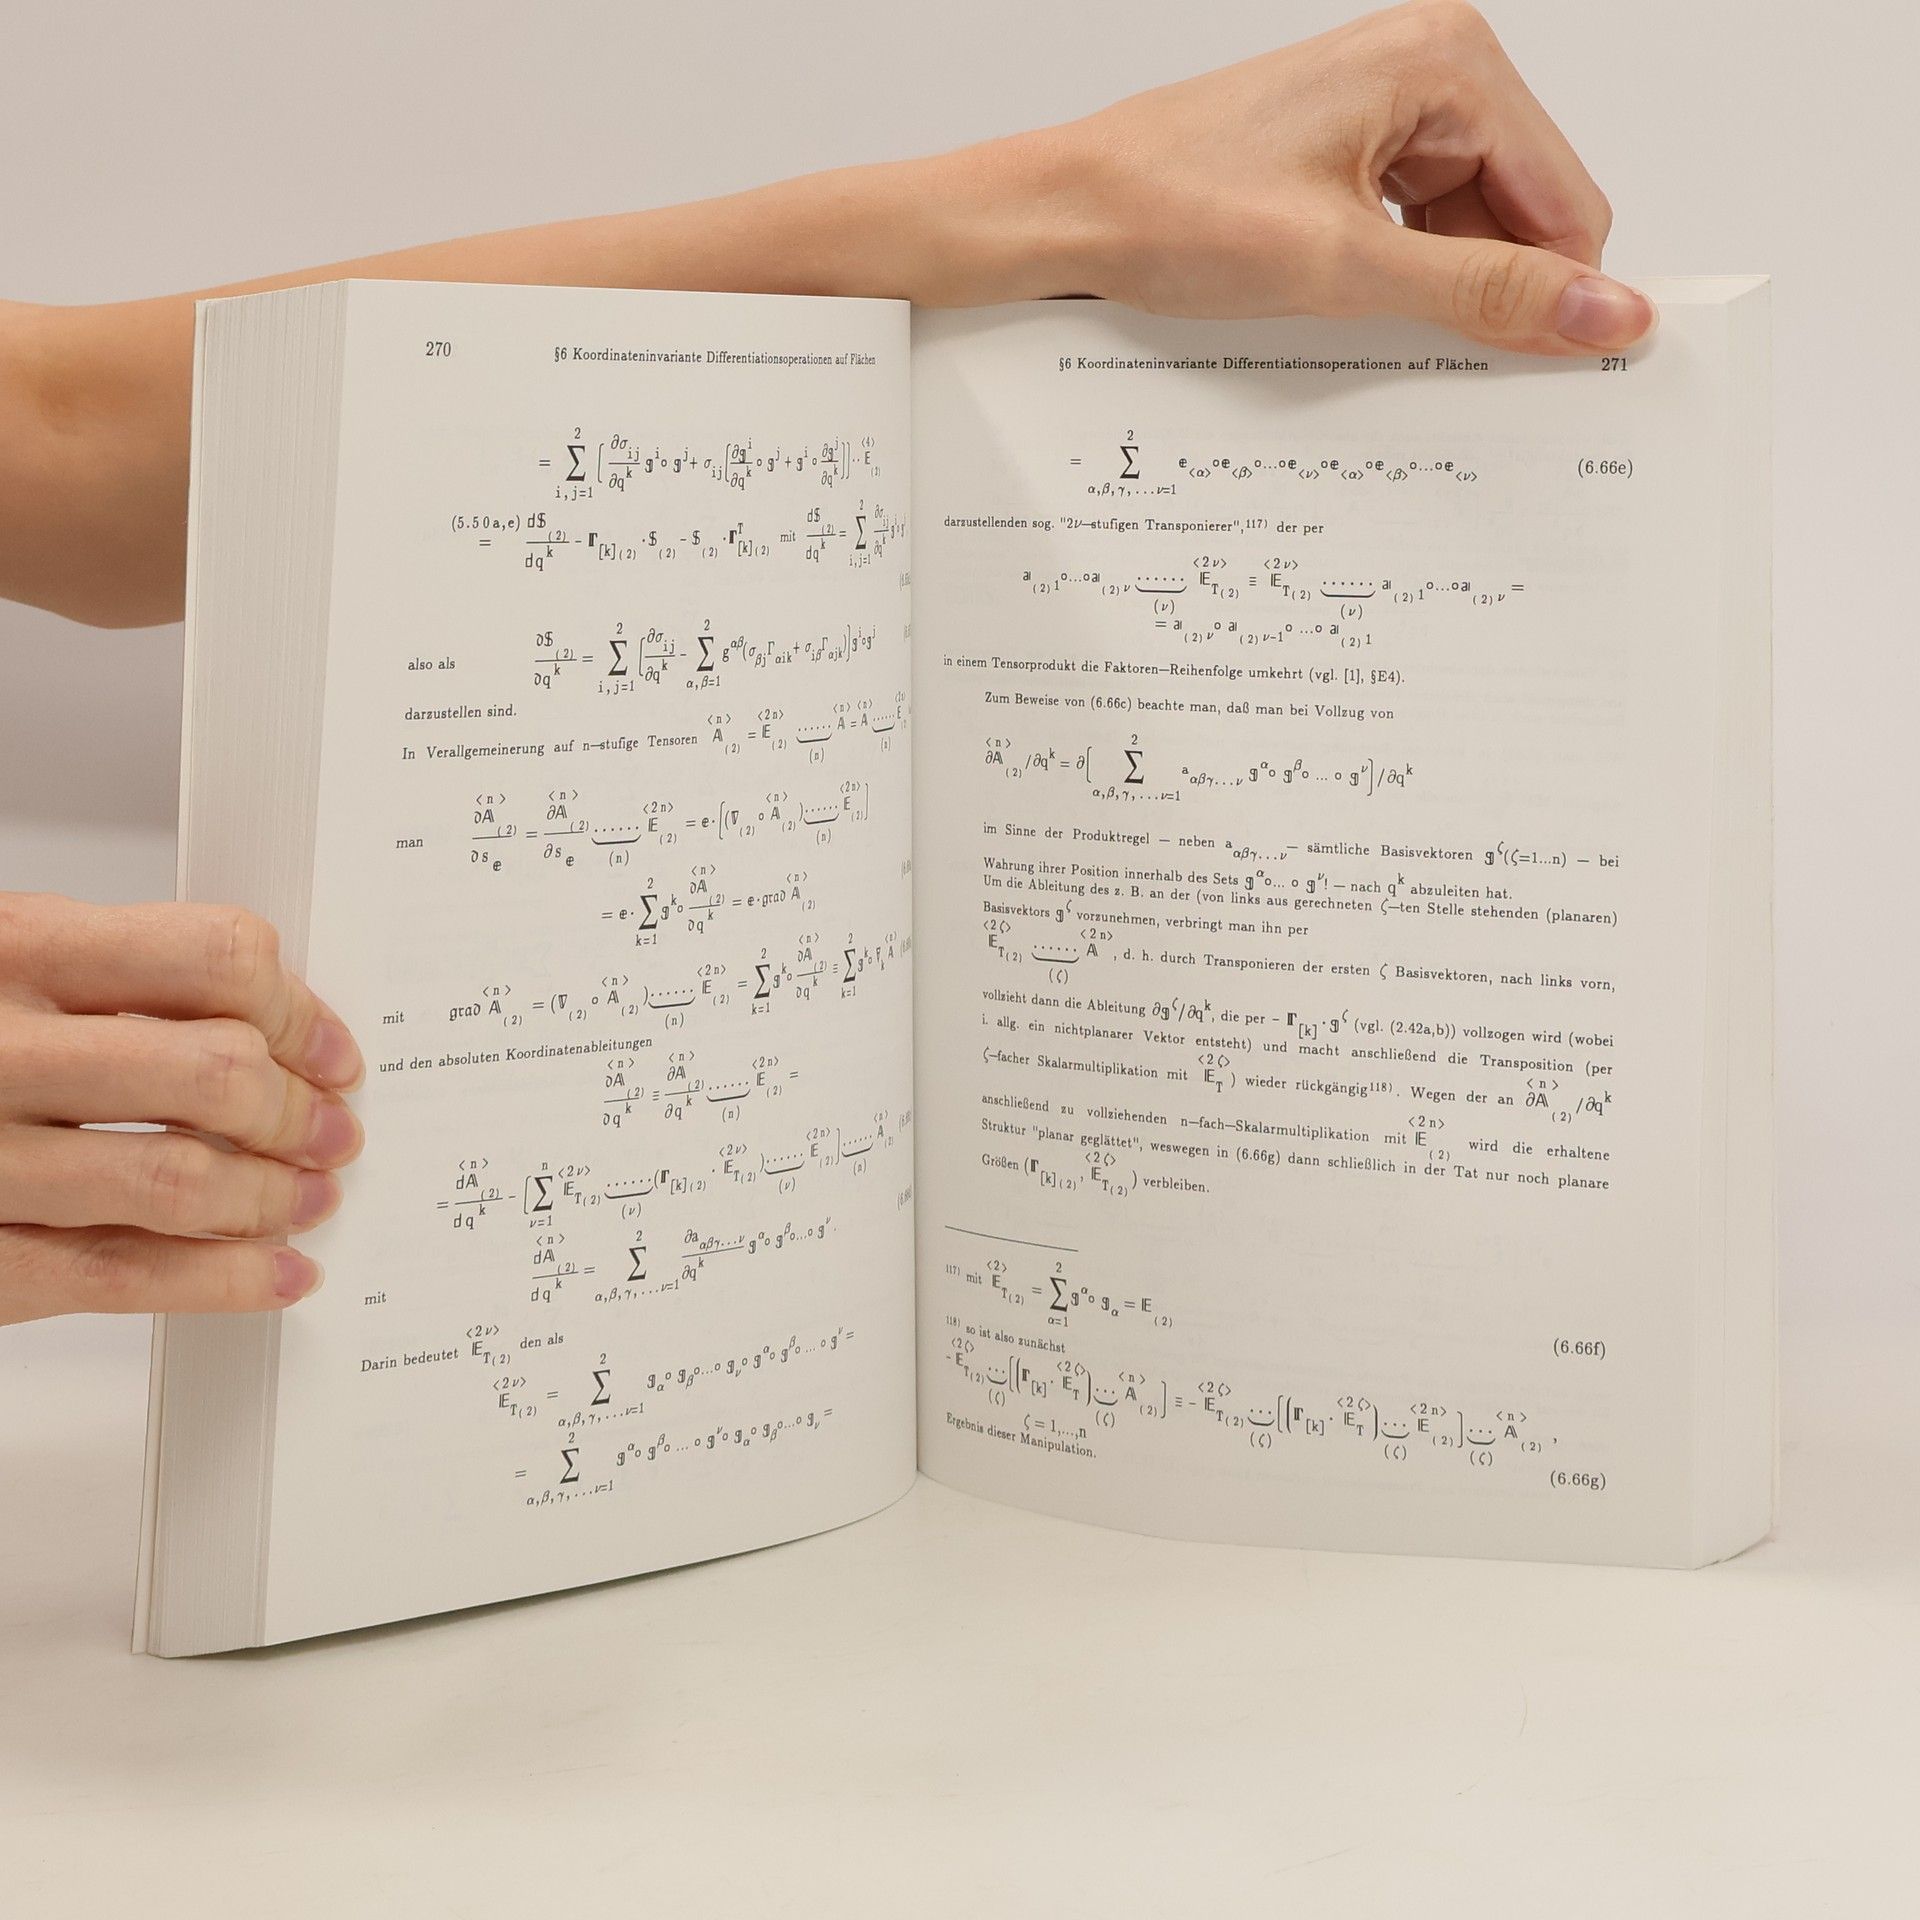 270 §6 Koordinateninvariante Differentiationsoperationen auf Flächen
= ∑_{i,j=1}^{2} [ ∂σ_{ij}/∂q^k g^i ∘ g^j + σ_{ij} [ ∂g^i/∂q^k ∘ g^j + g^i ∘ ∂g^j/∂q^k ] ] ·· E^{(4)}_{(2)}
(5.50a,e) = d$_{(2)}/dq^k − Γ_{[k](2)} · $_{(2)} − $_{(2)} · Γ^T_{[k](2)} mit d$_{(2)}/dq^k = ∑_{i,j=1}^{2} ∂σ_{ij}/∂q^k g^i ∘ g^j
also als ∂$_{(2)}/∂q^k = ∑_{i,j=1}^{2} [ ∂σ_{ij}/∂q^k − ∑_{α,β=1}^{2} g^{αβ}(σ_{βj}Γ_{αik} + σ_{iβ}Γ_{αjk}) ] g^i ∘ g^j
darzustellen sind.
In Verallgemeinerung auf n—stufige Tensoren A^{<n>}_{(2)} = E^{<2n>}_{(2)} ......_{(n)} A^{<n>} = A^{<n>} ......_{(n)} E^{<2n>}
man ∂A^{<n>}_{(2)}/∂s_e = ∂A^{<n>}_{(2)}/∂s_e ......_{(n)} E^{<2n>}_{(2)} = e · [(∇_{(2)} ∘ A^{<n>}_{(2)}) ......_{(n)} E^{<2n>}_{(2)}]
= e · ∑_{k=1}^{2} g^k ∘ ∂A^{<n>}_{(2)}/∂q^k = e · grad A^{<n>}_{(2)}
mit grad A^{<n>}_{(2)} = (∇_{(2)} ∘ A^{<n>}_{(2)}) ......_{(n)} E^{<2n>}_{(2)} = ∑_{k=1}^{2} g^k ∘ ∂A^{<n>}_{(2)}/∂q^k ≡ ∑_{k=1}^{2} g^k ∘ ∇_k A^{<n>}
und den absoluten Koordinatenableitungen
∂A^{<n>}_{(2)}/∂q^k ≡ ∂A^{<n>}_{(2)}/∂q^k ......_{(n)} E^{<2n>}_{(2)} =
= dA^{<n>}_{(2)}/dq^k − [ ∑_{ν=1}^{n} E^{<2ν>}_{T(2)} ......_{(ν)} (Γ_{[k](2)} · E^{<2ν>}_{T(2)}) ......_{(ν)} E^{<2n>}_{(2)} ] ......_{(n)} A^{<n>}_{(2)}
mit dA^{<n>}_{(2)}/dq^k = ∑_{α,β,γ,...ν=1}^{2} ∂a_{αβγ...ν}/∂q^k g^α ∘ g^β ∘ ... ∘ g^ν .
Darin bedeutet E^{<2ν>}_{T(2)} den als
E^{<2ν>}_{T(2)} = ∑_{α,β,γ,...ν=1}^{2} g_α ∘ g_β ∘ ... ∘ g_ν ∘ g^α ∘ g^β ∘ ... ∘ g^ν =
= ∑_{α,β,γ,...ν=1}^{2} g^α ∘ g^β ∘ ... ∘ g^ν ∘ g_α ∘ g_β ∘ ... ∘ g_ν =
§6 Koordinateninvariante Differentiationsoperationen auf Flächen 271
= ∑_{α,β,γ,...ν=1}^{2} e_{<α>} ∘ e_{<β>} ∘ ... ∘ e_{<ν>} ∘ e_{<α>} ∘ e_{<β>} ∘ ... ∘ e_{<ν>} (6.66e)
darzustellenden sog. "2ν—stufigen Transponierer",117) der per
a_{(2)1} ∘ ... ∘ a_{(2)ν} ......_{(ν)} E^{<2ν>}_{T(2)} ≡ E^{<2ν>}_{T(2)} ......_{(ν)} a_{(2)1} ∘ ... ∘ a_{(2)ν} =
= a_{(2)ν} ∘ a_{(2)ν−1} ∘ ... ∘ a_{(2)1}
in einem Tensorprodukt die Faktoren—Reihenfolge umkehrt (vgl. [1], §E4).
Zum Beweise von (6.66c) beachte man, daß man bei Vollzug von
∂A^{<n>}_{(2)}/∂q^k = ∂[ ∑_{α,β,γ,...ν=1}^{2} a_{αβγ...ν} g^α ∘ g^β ∘ ... ∘ g^ν ]/∂q^k
im Sinne der Produktregel — neben a_{αβγ...ν} — sämtliche Basisvektoren g^ζ (ζ=1...n) — bei
Wahrung ihrer Position innerhalb des Sets g^α ∘ ... ∘ g^ν! — nach q^k abzuleiten hat.
Um die Ableitung des z. B. an der (von links aus gerechneten ζ—ten Stelle stehenden (planaren)
Basisvektors g^ζ vorzunehmen, verbringt man ihn per
E^{<2ζ>}_{T(2)} ......_{(ζ)} A^{<2n>} , d. h. durch Transponieren der ersten ζ Basisvektoren, nach links vorn,
vollzieht dann die Ableitung ∂g^ζ/∂q^k, die per − Γ_{[k]} · g^ζ (vgl. (2.42a,b)) vollzogen wird (wobei
i. allg. ein nichtplanarer Vektor entsteht) und macht anschließend die Transposition (per
ζ—facher Skalarmultiplikation mit E^{<2ζ>}_T ) wieder rückgängig118). Wegen der an ∂A^{<n>}_{(2)}/∂q^k
anschließend zu vollziehenden n—fach—Skalarmultiplikation mit E^{<2n>}_{(2)} wird die erhaltene
Struktur "planar geglättet", weswegen in (6.66g) dann schließlich in der Tat nur noch planare
Größen (Γ_{[k](2)}, E^{<2ζ>}_{T(2)}) verbleiben.
117) mit E^{<2>}_{T(2)} = ∑_{α=1}^{2} g^α ∘ g_α = E_{(2)}
(6.66f)
118) so ist also zunächst
− E^{<2ζ>}_{T(2)} ..._{(ζ)} [(Γ_{[k]} · E^{<2ζ>}_T) ..._{(ζ)} A^{<n>}_{(2)}] ≡ − E^{<2ζ>}_{T(2)} ..._{(ζ)} [(Γ_{[k]} · E^{<2ζ>}_T) ..._{(ζ)} E^{<2n>}_{(2)}] ..._{(ζ)} A^{<n>}_{(2)} ,
ζ = 1,...,n
Ergebnis dieser Manipulation.
(6.66g)